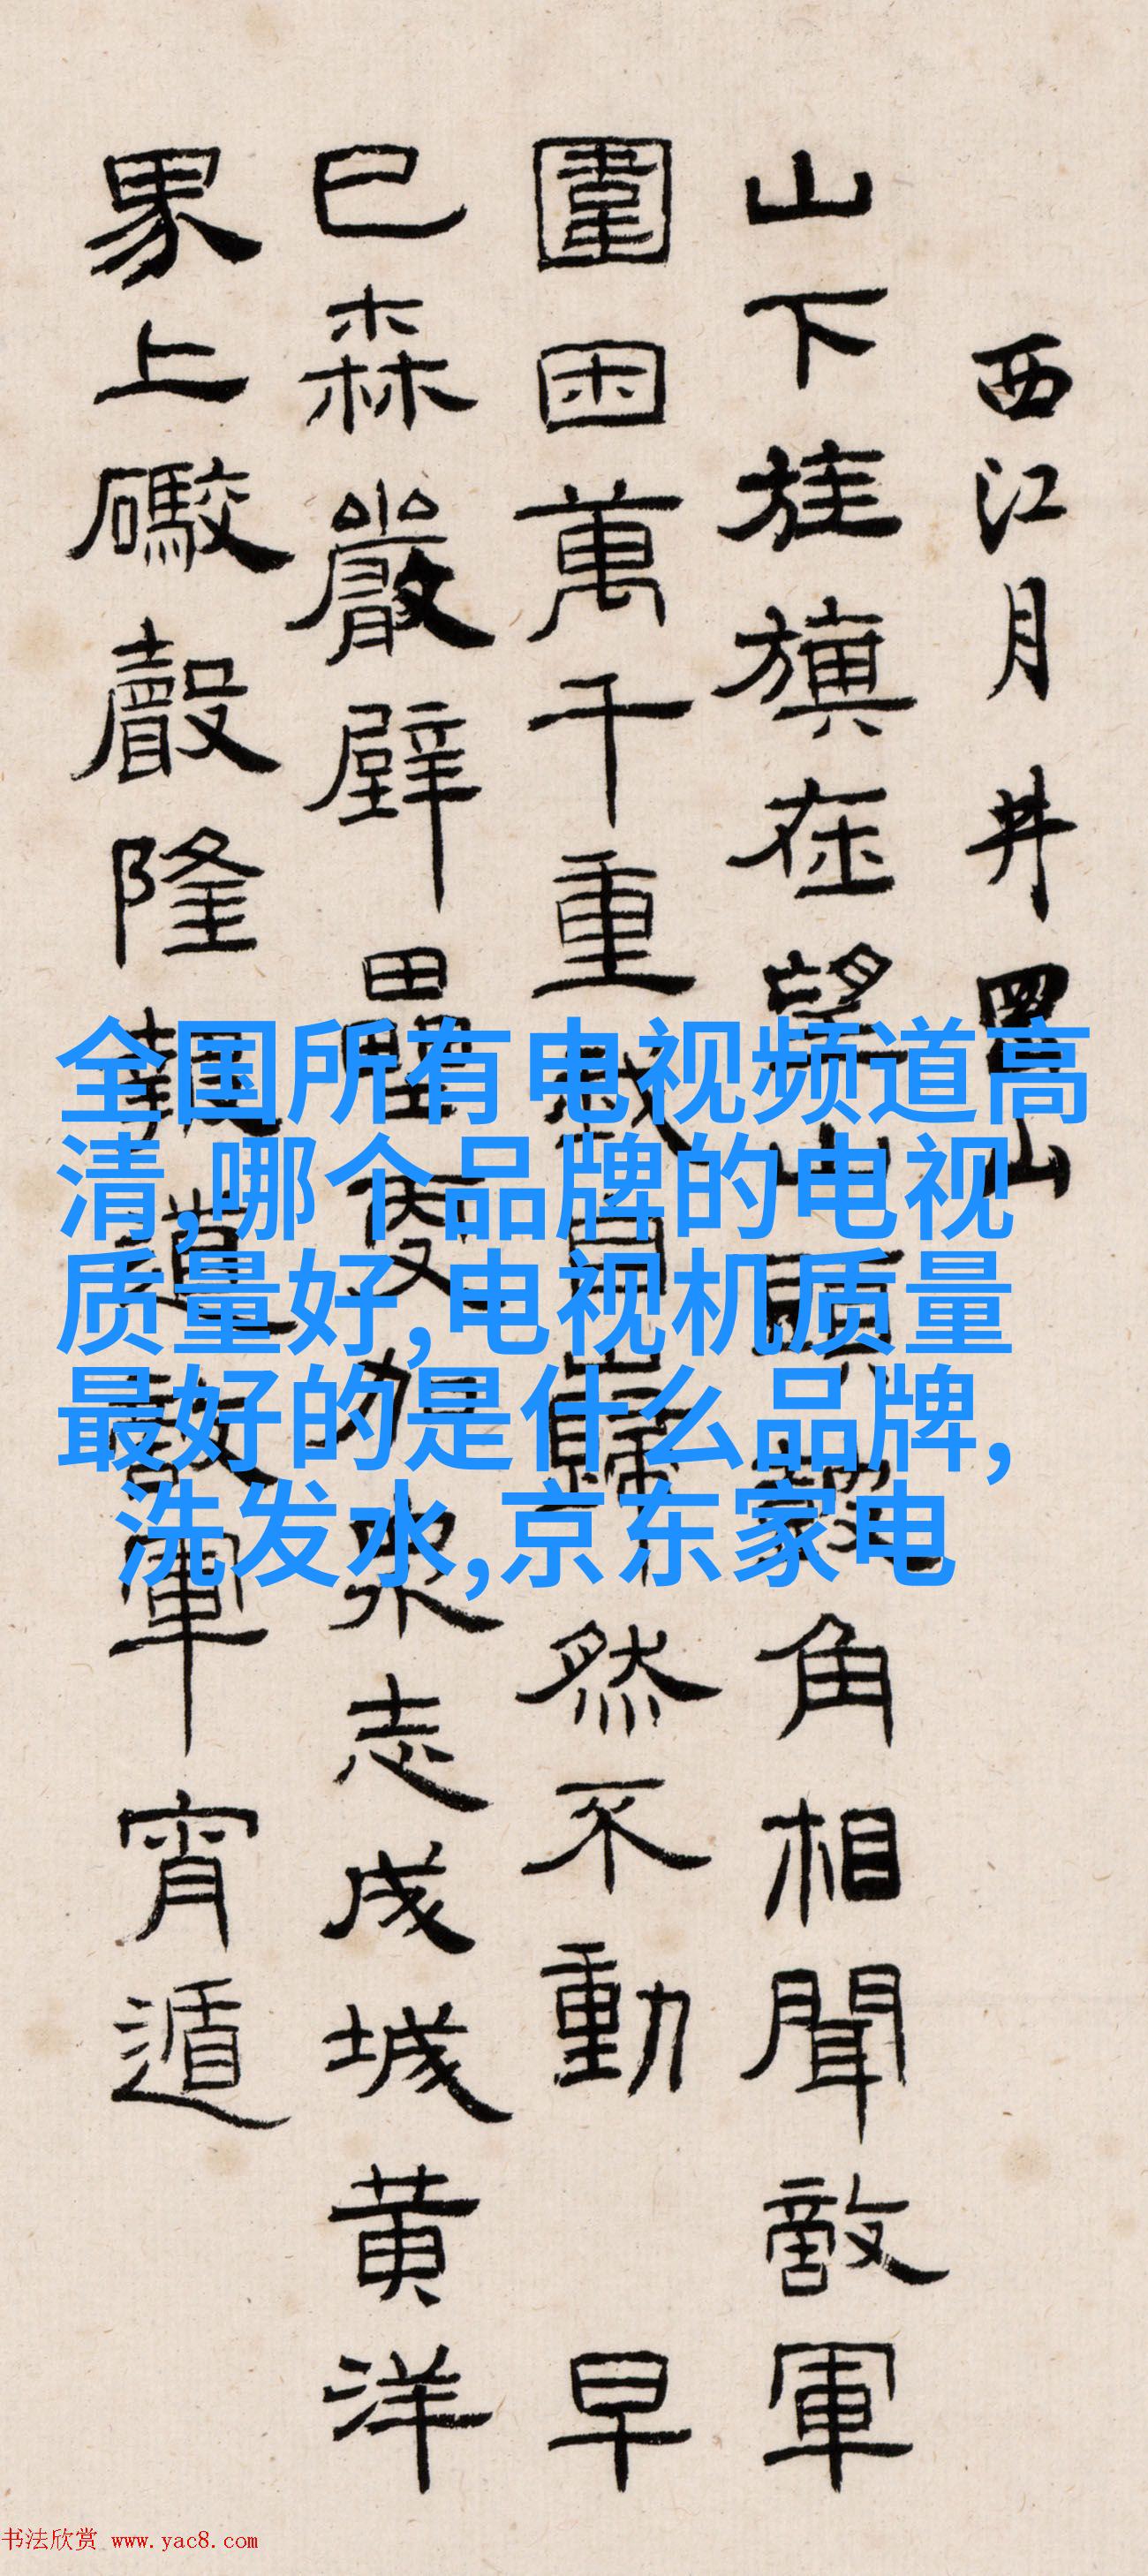 西江月井冈山
山下旌旗在望山頭鼓角相聞敵軍
圍困萬千重我自巋然不動早
已森嚴壁壘更加衆志成城黄洋
界上礮聲隆報道敵軍宵遁
全国所有电视频道高
清,哪个品牌的电视
质量好,电视机质量
最好的是什么品牌,
洗发水,京东家电
书法欣赏 www.yac8.com